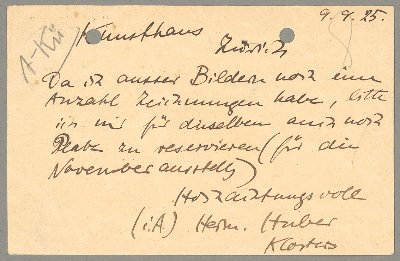 9. 9. 25.
A-Kü
Kunsthaus
Zürich
Da ich ausser Bildern noch eine
Anzahl Zeichnungen habe, bitte
ich mir für dieselben auch noch
Platz zu reservieren (für die
Novemberausstellg)
Hochachtungsvoll
(i.A) Herm. Huber
Klosters